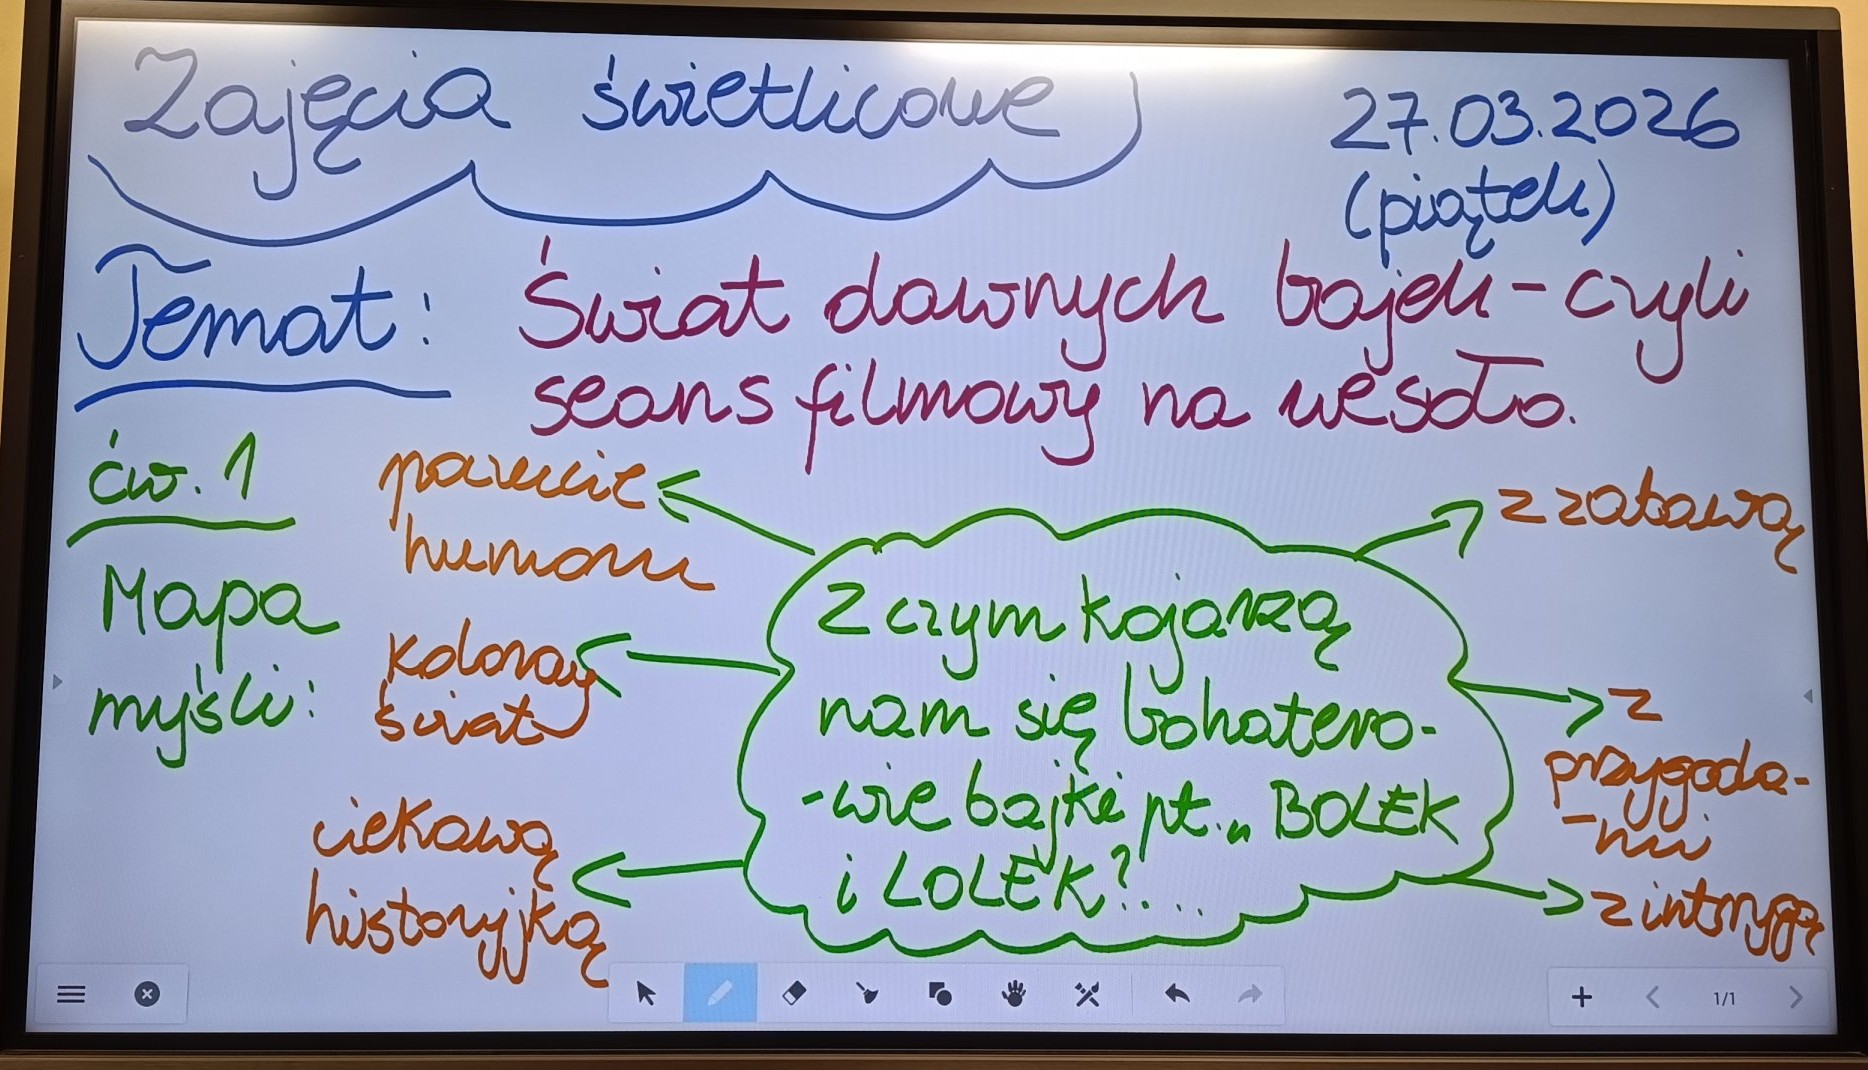 Zajęcia świetlicowe
27.03.2026
(piątek)
Temat: Świat dawnych bajek - czyli
seans filmowy na wesoło.
ćw. 1
Mapa
myśli:
poczucie
humoru
kolorowy
świat
ciekawą
historyjką
Z czym kojarzą
nam się bohatero-
-wie bajki pt. „BOLEK
i LOLEK?...
z zabawą
z
przygoda-
-mi
z intrygą
1/1